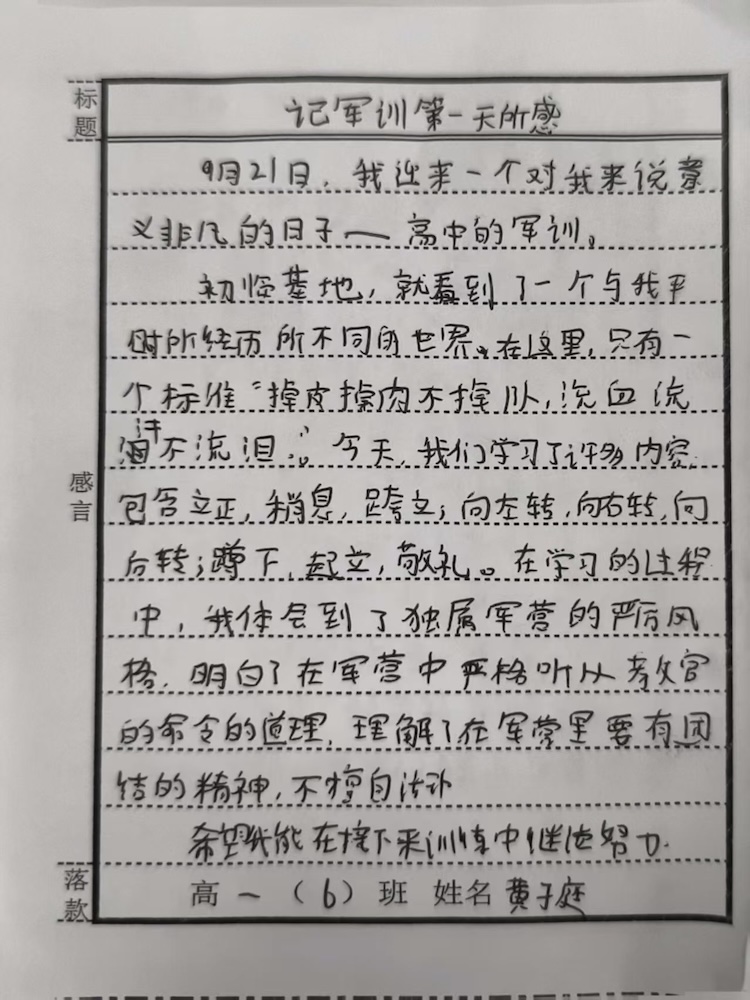 标题
记军训第一天所感
9月21日，我迎来一个对我来说意
义非凡的日子——高中的军训。
初临基地，就看到了一个与我平
时所经历所不同的世界。在这里，只有一
个标准“掉皮掉肉不掉队，流血流
汗不流泪。”今天，我们学习了许多内容，
包含立正，稍息，跨立；向左转，向右转，向
后转；蹲下，起立，敬礼。在学习的过程
中，我体会到了独属军营的严厉风
格，明白了在军营中严格听从教官
的命令的道理，理解了在军营里要有团
结的精神，不擅自活动
希望我能在接下来训练中继续努力.
感言
落款
高一（6）班 姓名 黄子庭